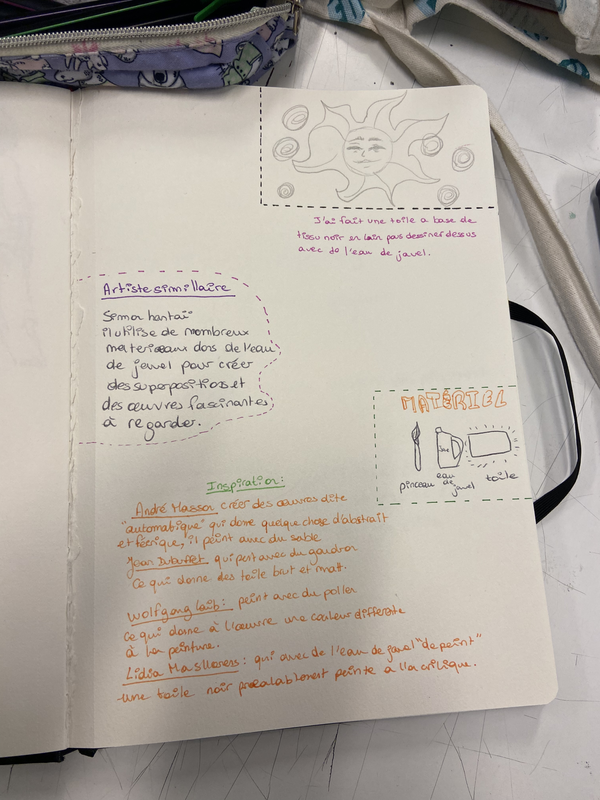 J'ai fait une toile a base de
tissu noir en lain puis dessiner dessus
avec de l'eau de javel.
Artiste simillaire
Simon hantaï
il utilise de nombreux
materieaux dons de l'eau
de javel pour créer
des superpositions et
des œuvres fascinantes
à regarder.
MATÉRIEL
Jav
pinceau
eau
de
javel
toile
Inspiration:
André Masson créer des œuvres dite
"automatique" qui donne quelque chose d'abstrait
et féerique, il peint avec du sable
Jean Dubuffet, qui peint avec du goudron
Ce qui donne des toile brut et matt.
Wolfgang Laib: peint avec du pollen
ce qui donne à l'œuvre une couleur différente
à la peinture.
Lidia Masllorens: qui avec de l'eau de javel "de peint"
une toile noir préalablement peinte a l'acrilique.